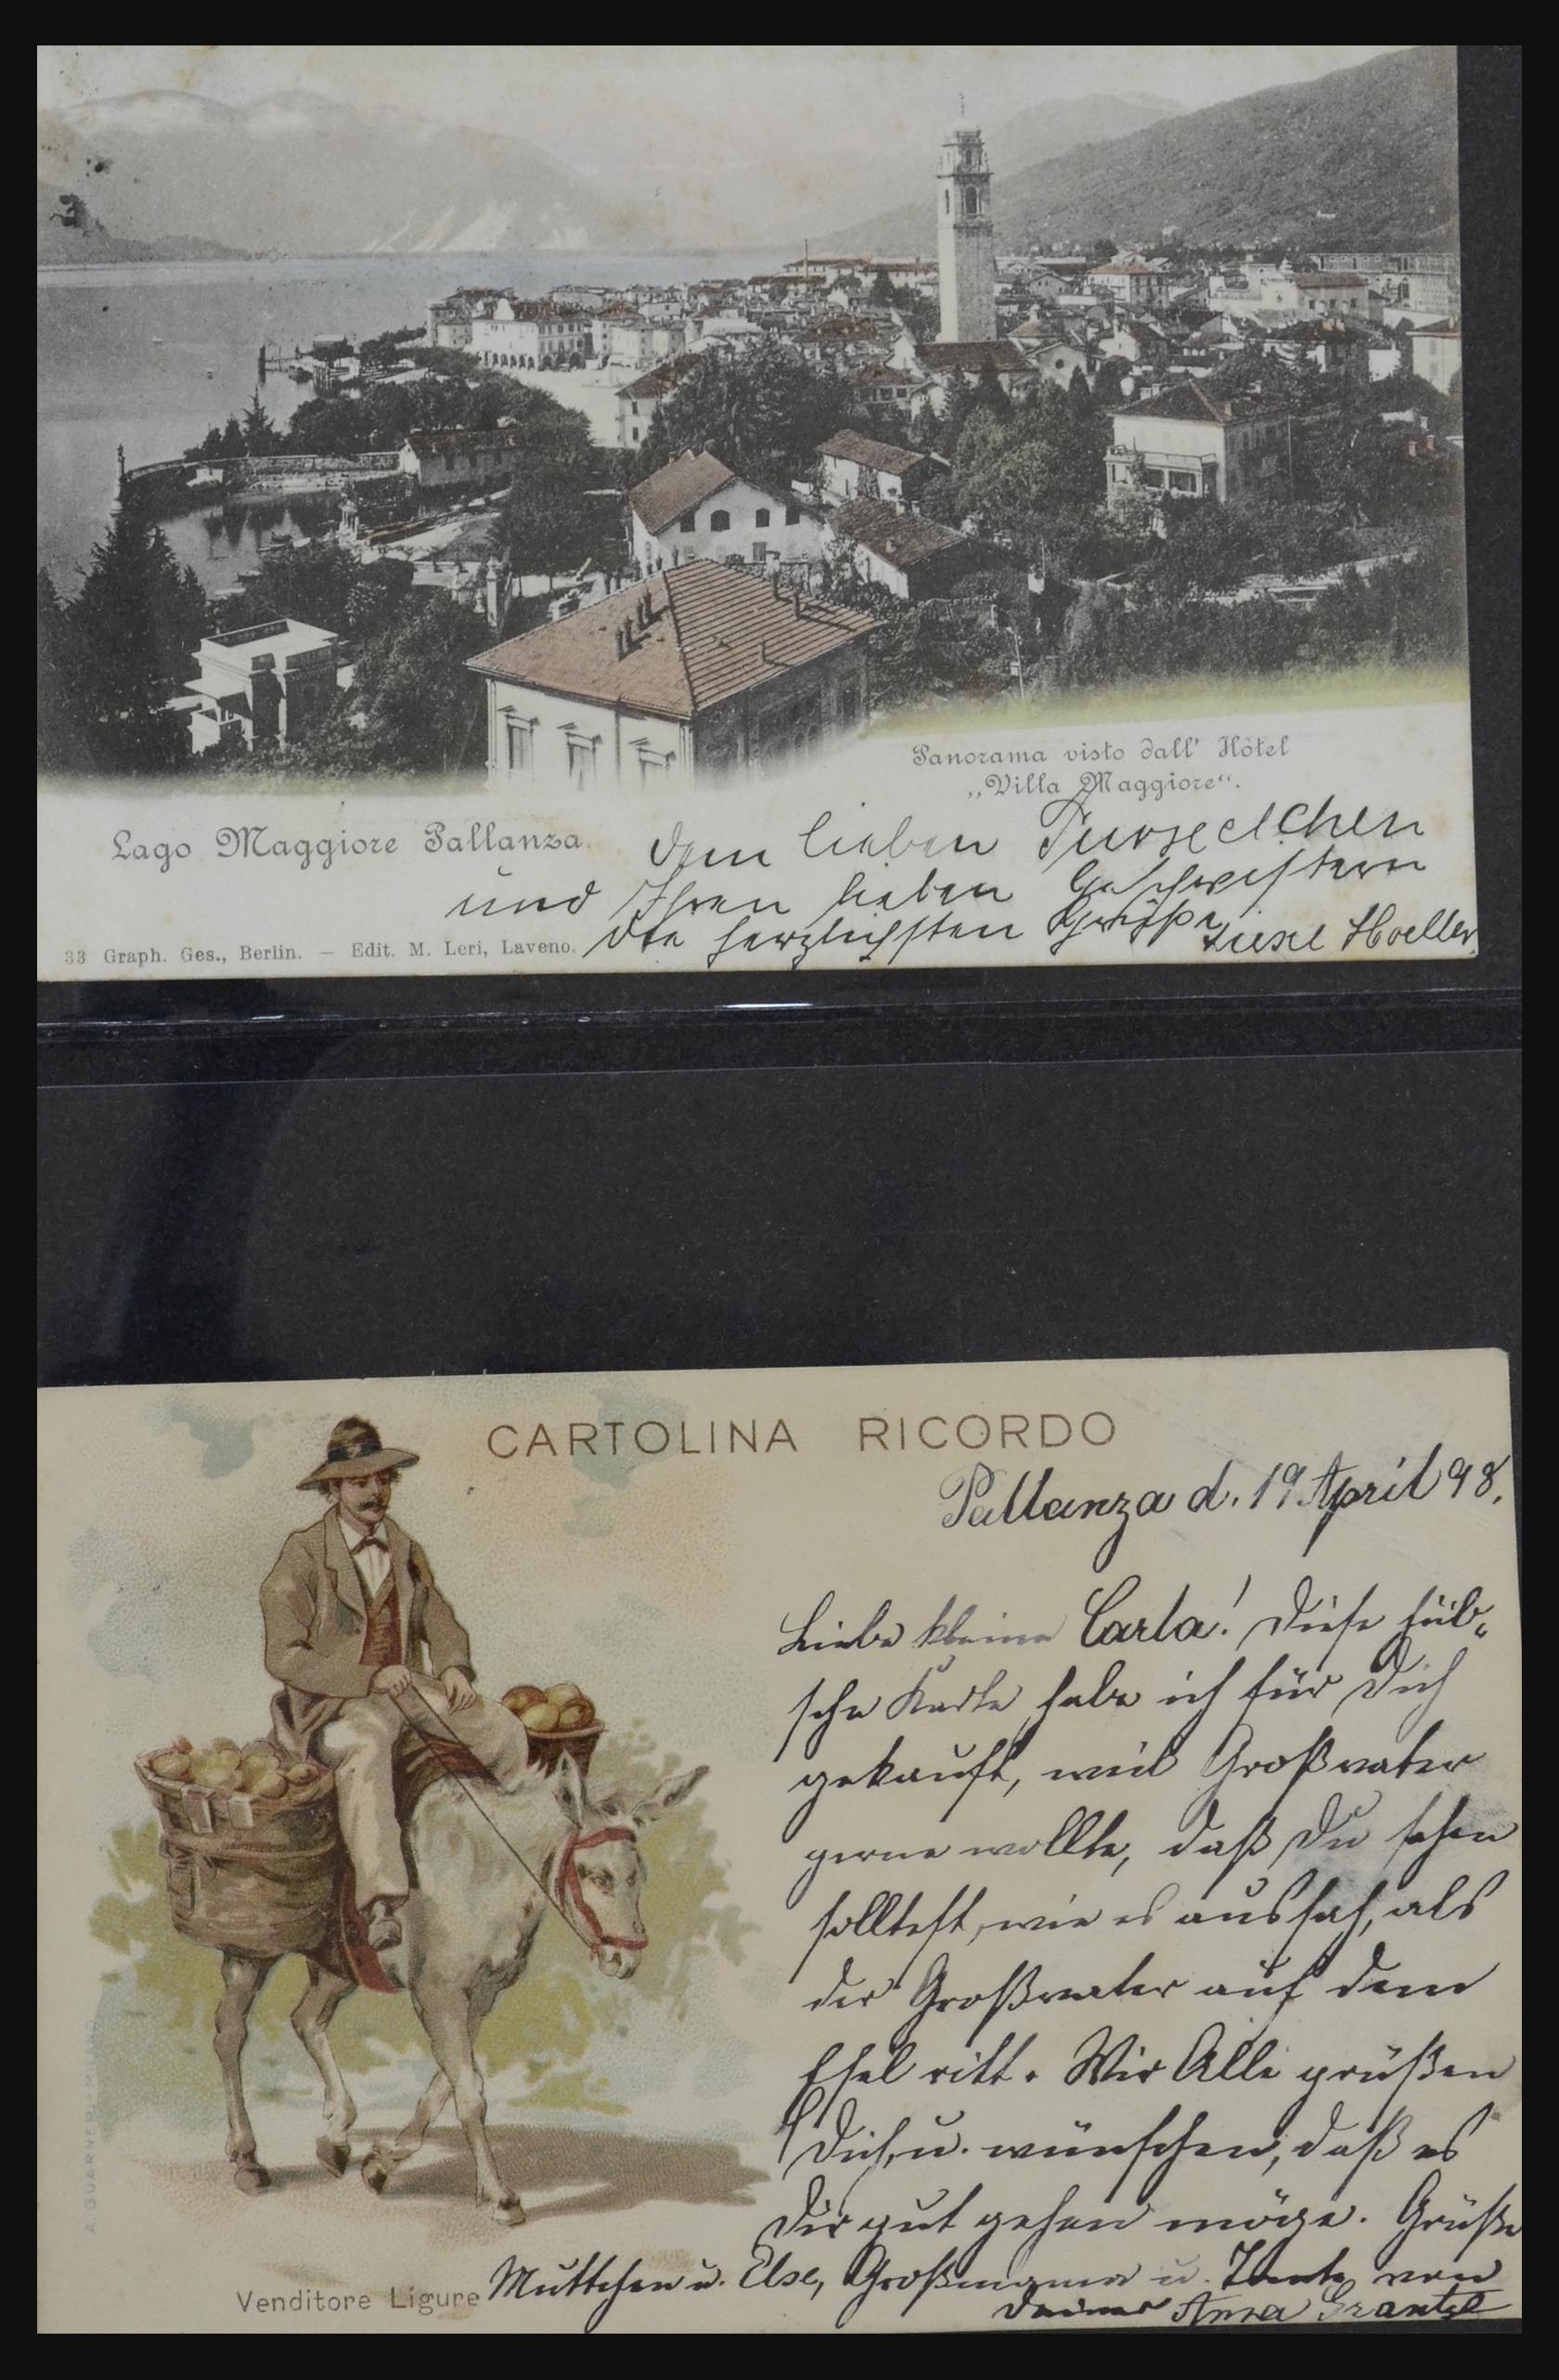 Panorama visto dall' Hôtel
„Villa Maggiore“.
Lago Maggiore Pallanza.
Dem lieben
und Ihren lieben Geschwistern
die herzlichsten Grüße
Liesel Hoeller
33 Graph. Ges., Berlin. — Edit. M. Leri, Laveno.
CARTOLINA RICORDO
Pallanza d. 19 April 98.
Liebe kleine Carla! Diese hüb„
sche Karte habe ich für Dich
gekauft, weil Großvater
gerne wollte, daß Du sehen
solltest, wie es aussah, als
der Großvater auf dem
Esel ritt. Wir Alle grüßen
Dich, u. wünschen, daß es
Dir gut gehen möge. Grüße
Muttchen u. Else, Großmama u. Tante von
Deiner Anna
Venditore Ligure